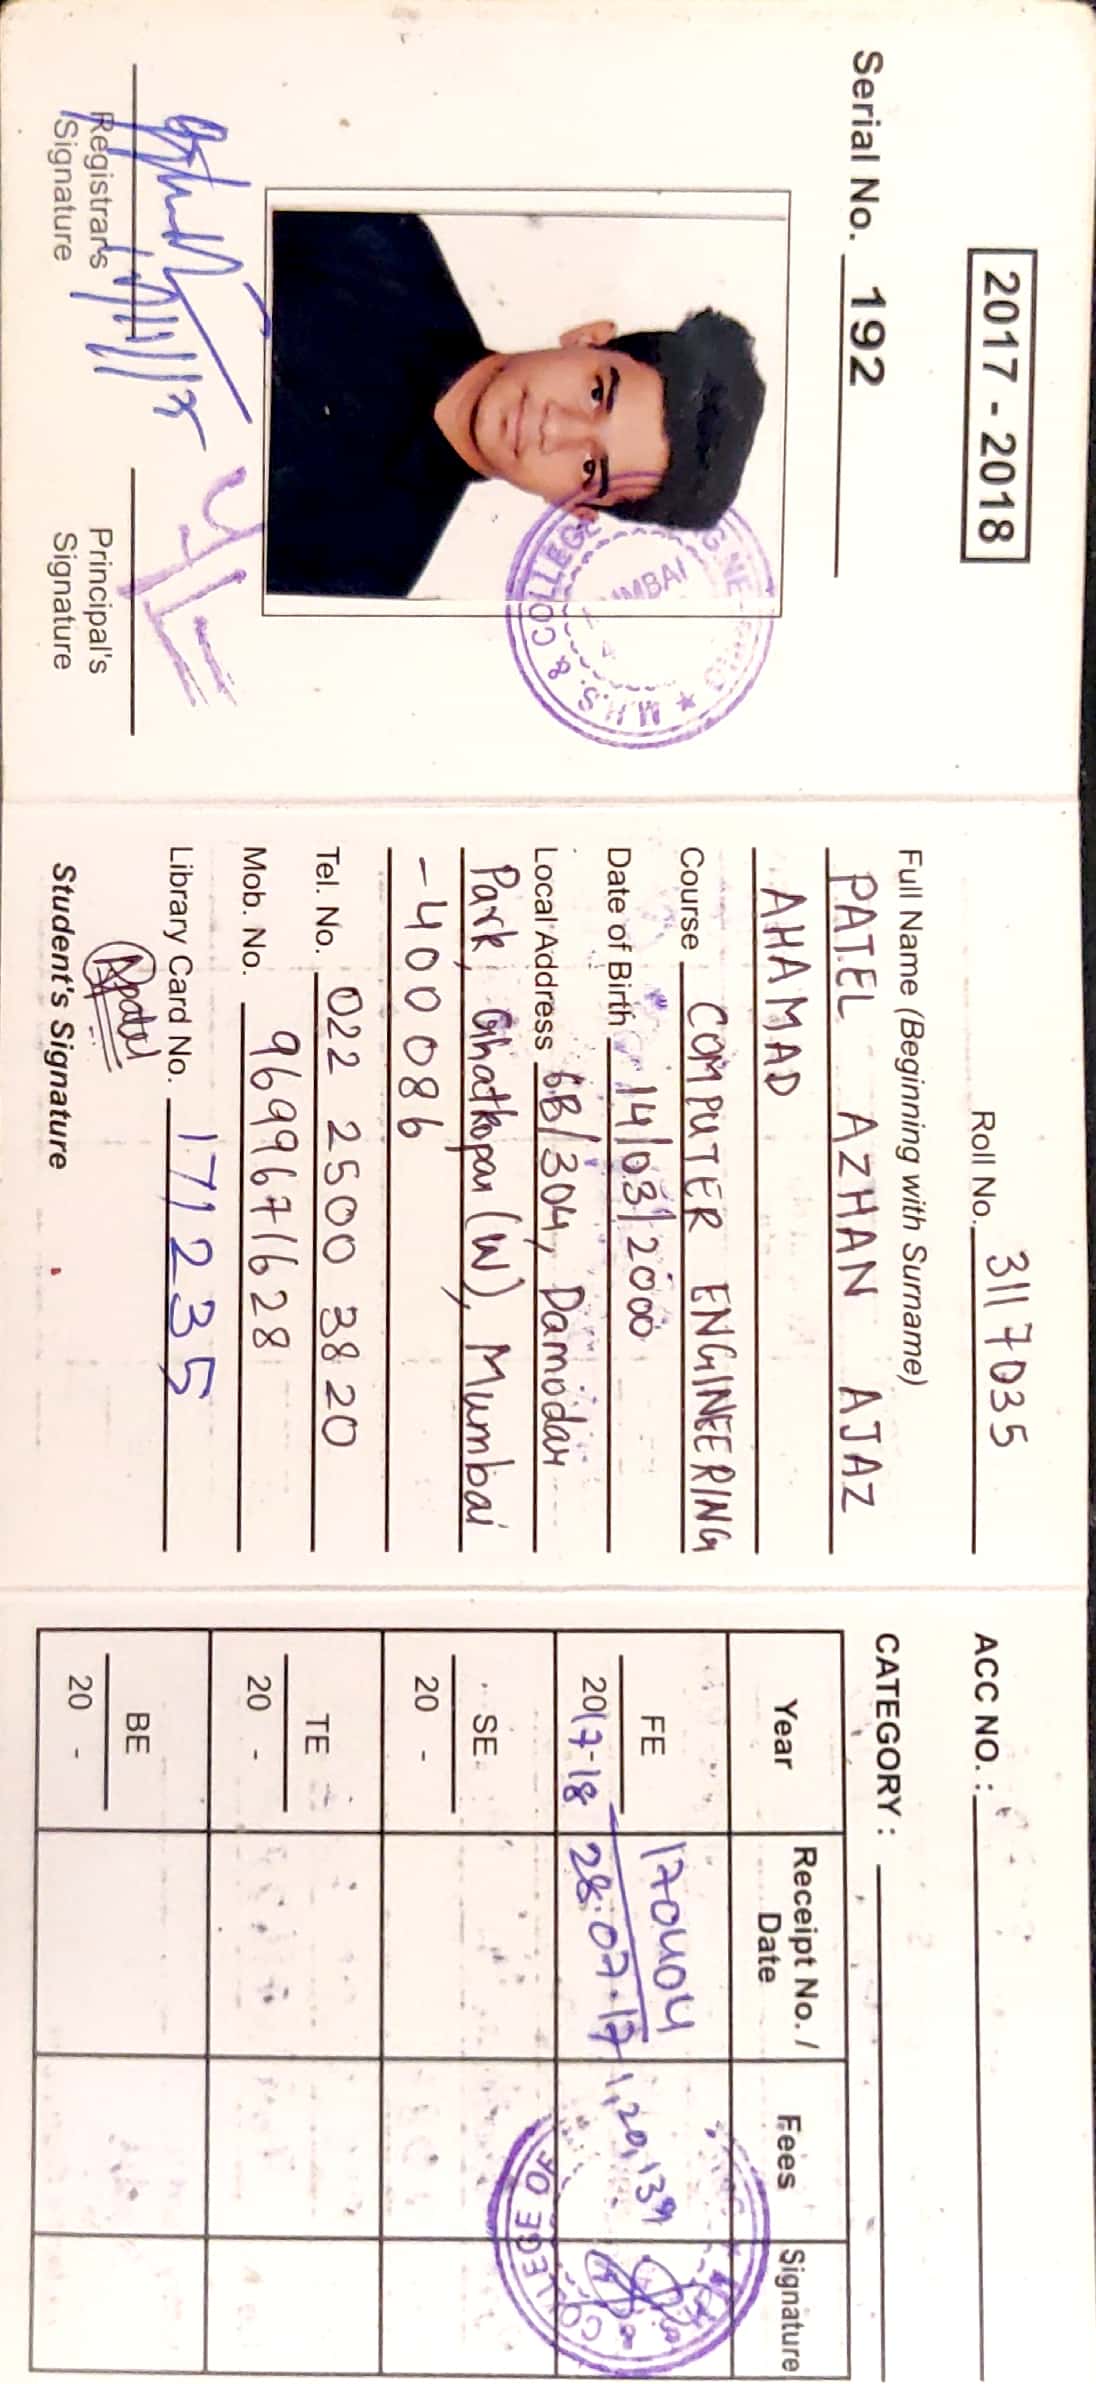 2017 - 2018
Serial No. 192
MBAI
M.H.S. & COLLEGE
Registrar's
Signature
Principal's
Signature
Roll No. 3117035
Full Name (Beginning with Surname)
PATEL AZHAN AJAZ
AHAMAD
Course COMPUTER ENGINEERING
Date of Birth 14/03/2000
Local Address 6B/304, Damodar
Park, Ghatkopar (W), Mumbai
- 400 086
Tel. No. 022 2500 3820
Mob. No. 9699671628
Library Card No. 171235
Apatel
Student's Signature
ACC NO. :
CATEGORY :
Year Receipt No. / Date Fees Signature
FE 170404
2017-18 28.07.17 1,20,139
COLLEGE OF
SE
20 -
TE
20 -
BE
20 -